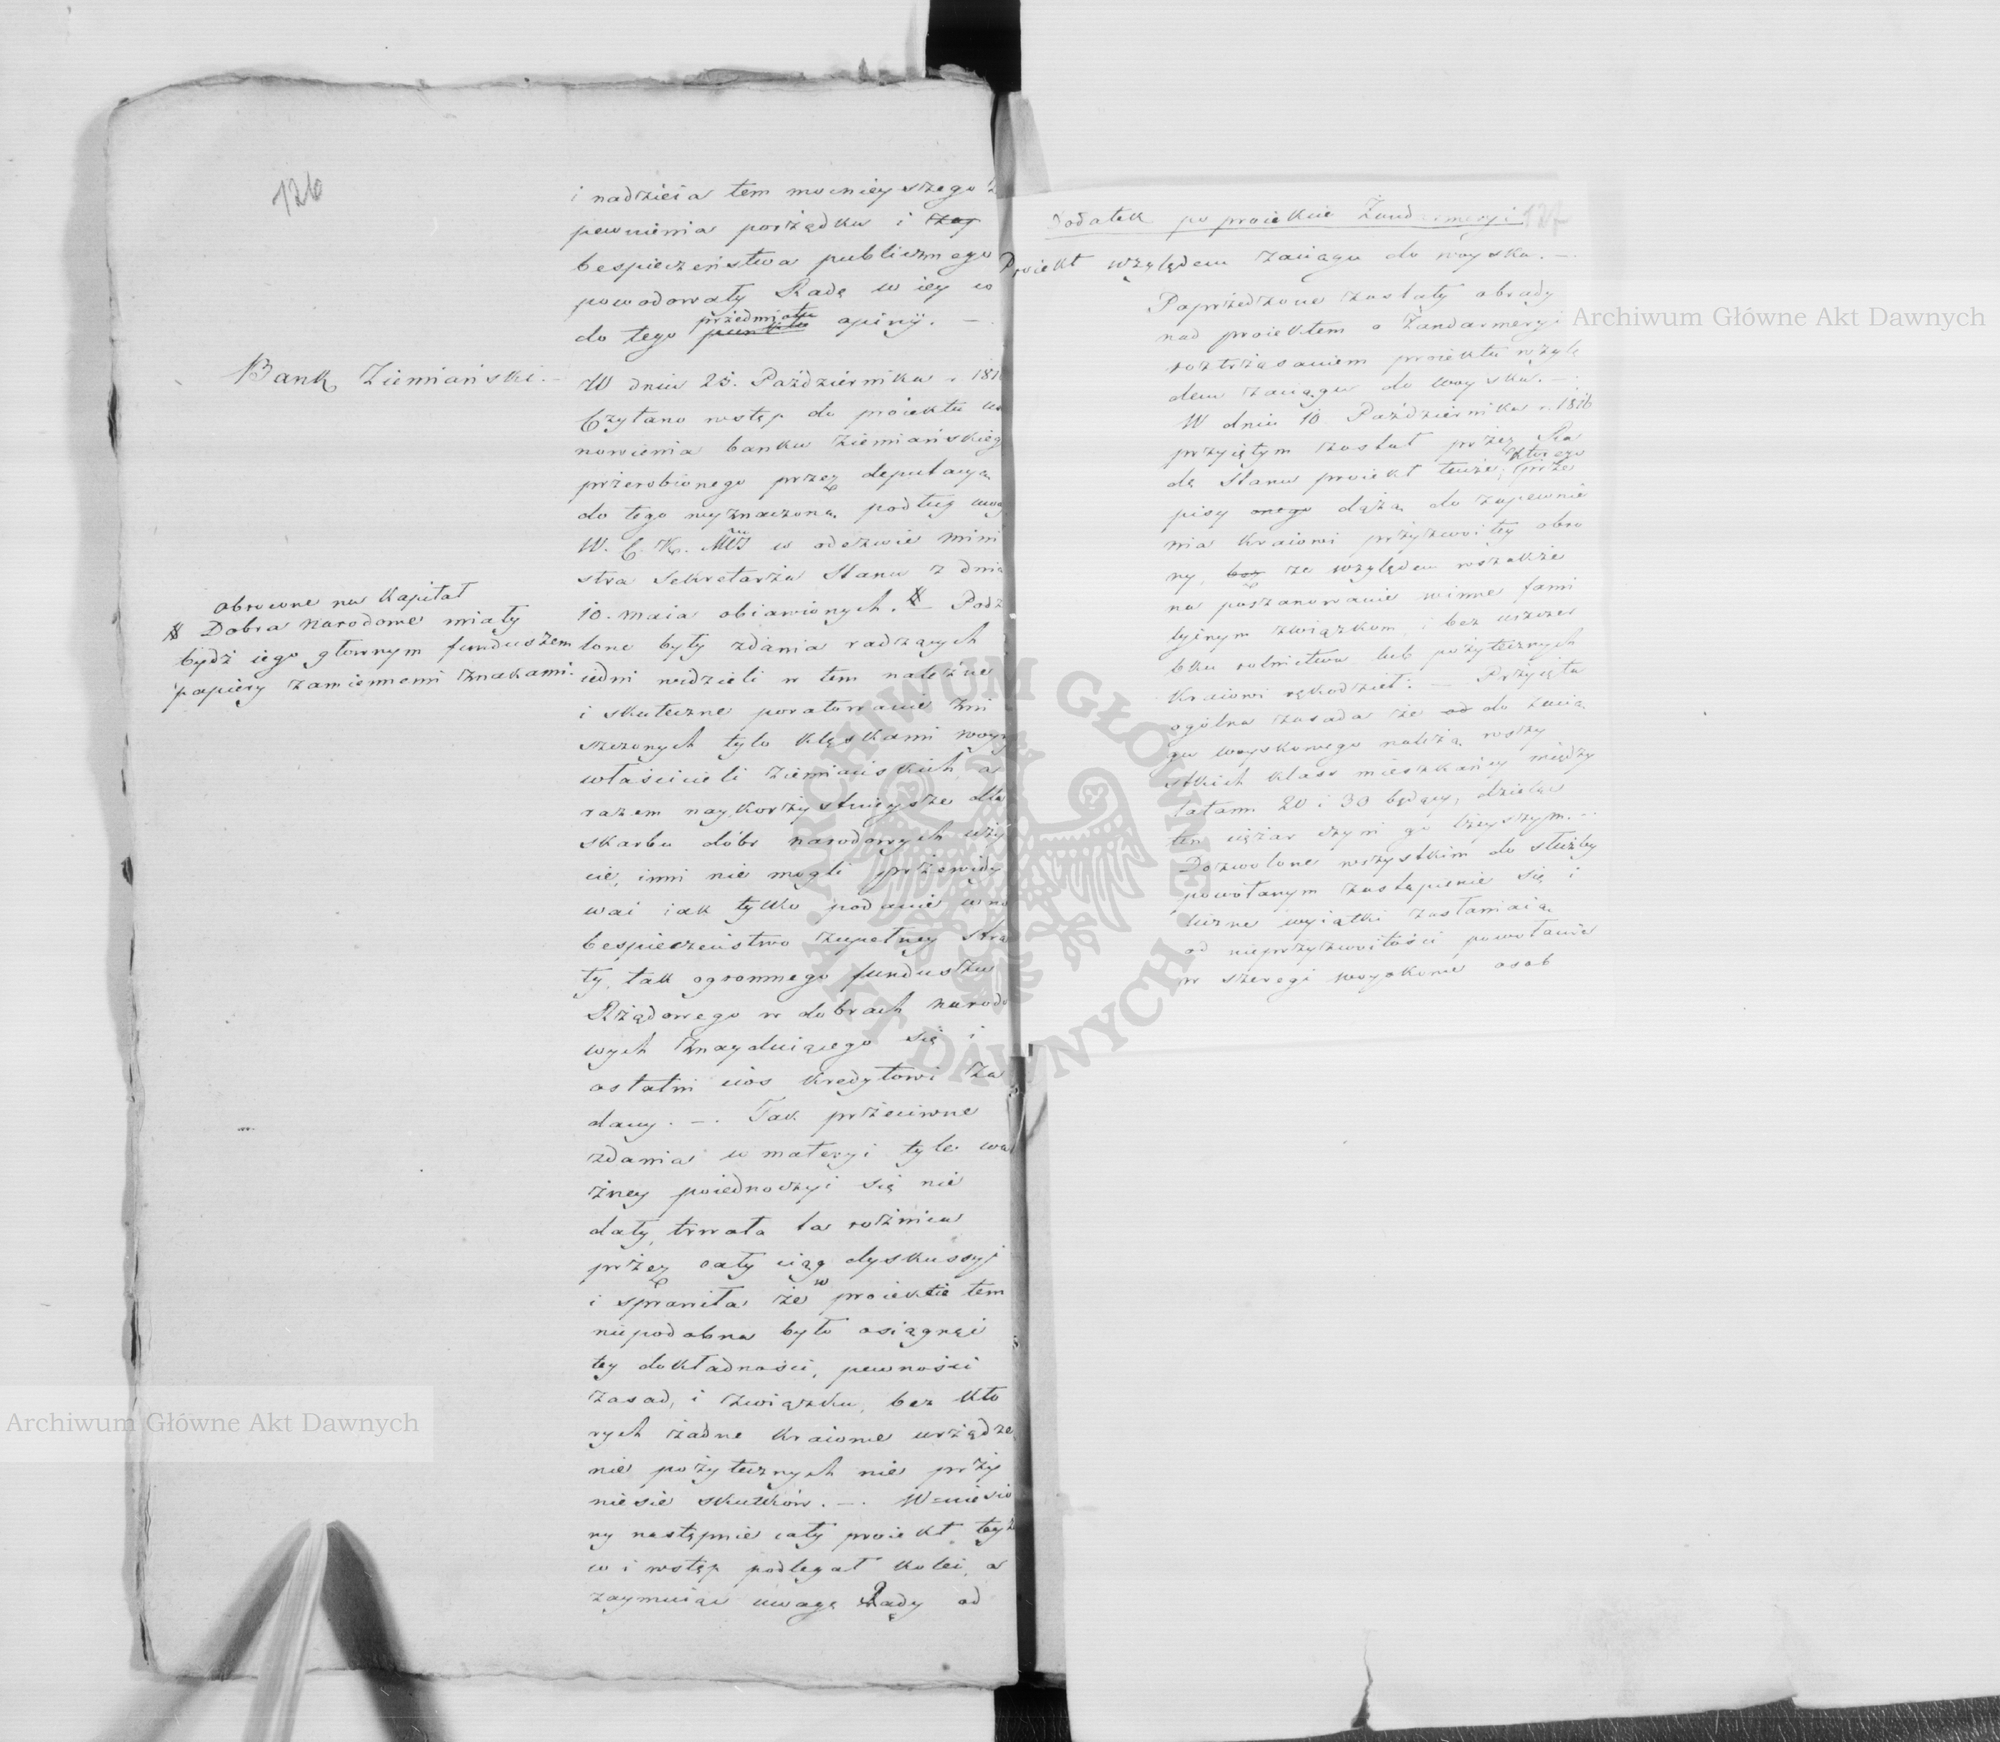 126
i nadzieia tem mocnieyszego za
pewnienia porządku i
bespieczeństwa publicznego
powodowały Radę w iey co
do tego przedmiotu opinij. —
Bank Ziemiański. —
W dniu 25. Października r. 1816
Czytano wstęp do proiektu usta
nowienia banku Ziemiańskieg
przerobionego przez deputacyą
do tego wyznaczoną podług uwag
W. C. K. Mści w odezwie mini
stra Sekretarza Stanu z dnia
10. maia obiawionych. — Podzi
obrócone na Kapitał
Dobra Narodowe miały
bydź iego głownym funduszem
papiery zamiennemi znakami.
lone były zdania radzących
iedni widzieli w tem należne
i skuteczne poratowanie zni
szczonych tylo klęskami woyny
właścicieli Ziemiańskich, a
razem naykorzystnieysze dla
skarbu dóbr narodowych uży
cie, inni nie mogli przewidy
wać iak tylko podanie w nie
bespieczeństwo zupełney stra
ty, tak ogromnego funduszu
Rządowego w dobrach narodo
wych znayduiącego się i
ostatni cios kredytowi za
dany. —. Tak przeciwne
zdania w materyi tyle wa
żney poiednoczyć się nie
dały, trwała ta rożnica
przez cały ciąg dyskussyi
i sprawiła że w proiekcie tem
niepodobna było osiągnąć
tey dokładności, pewności
zasad, i związku, bez któ
rych żadne Kraiowe urządze
nie pożytecznych nie przy
niesie skutków. —. Wniesio
ny następnie cały proiekt teyż
co i wstęp podlegał kolei, a
zaymuiąc uwagę Rady od
Dodatek po proiekcie Żandarmeryi 127
Proiekt względem zaciągu do woyska. —
Poprzedzone zostały obrady
nad proiektem o Żandarmeryi
roztrząsaniem proiektu wzglę
dem zaciągu do woyska. —
W dniu 10 Października r. 1816
przyiętym został przez Ra
dę Stanu proiekt tenże, którego prze
pisy onego dążą do zapewnie
nia Kraiowi przyzwoitey obro
ny, ze względem wszakże
na poszanowanie winne fami
lyinym związkom, i bez uszczer
bku rolnictwa lub pożytecznych
Kraiowi rękodzieł. — Przyięta
ogólna zasada że do zacią
gu woyskowego należą wszy
stkich klass mieszkańcy między
latami 20 i 30 będący, dzieląc
ten ciężar czyni go lżeyszym. —
Dozwolone wszystkim do służby
powołanym zastąpienie się i
liczne wyiątki zasłaniaią
od nieprzyzwoitości powołanie
w szeregi woyskowe osob
Archiwum Główne Akt Dawnych
Archiwum Główne Akt Dawnych
ARCHIWUM GŁÓWNE AKT DAWNYCH